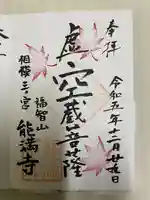 奉拝
令和五年十二月廿九日
虚空蔵菩薩
福智山
相模三ノ宮
能満寺